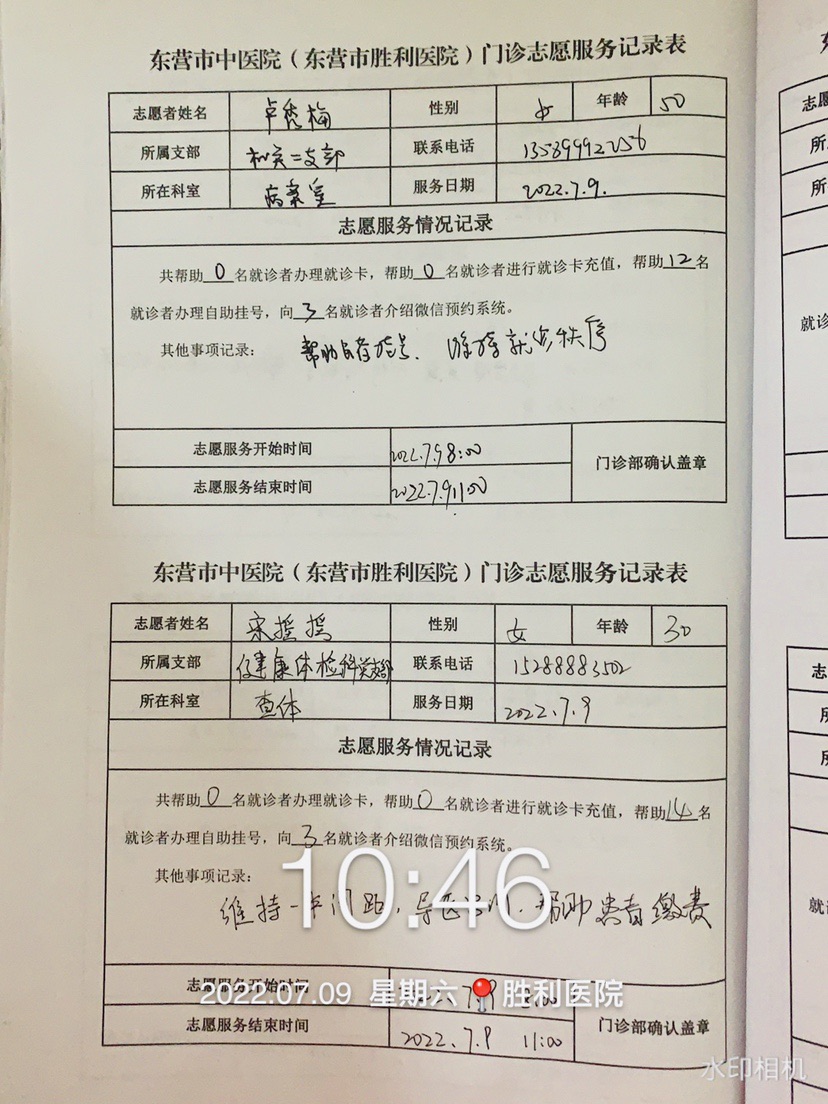 东营市中医院（东营市胜利医院）门诊志愿服务记录表
志愿者姓名 卢秀梅 性别 女 年龄 50
所属支部 机关二支部 联系电话 13589992256
所在科室 病案室 服务日期 2022.7.9.
志愿服务情况记录
共帮助0名就诊者办理就诊卡，帮助0名就诊者进行就诊卡充值，帮助12名
就诊者办理自助挂号，向3名就诊者介绍微信预约系统。
其他事项记录： 帮助 维持就诊秩序
志愿服务开始时间 2022.7.9 8:00
门诊部确认盖章
志愿服务结束时间 2022.7.9 11:00
东营市中医院（东营市胜利医院）门诊志愿服务记录表
志愿者姓名 宋摇摇 性别 女 年龄 30
所属支部 健康体检科党支部 联系电话 15288883502
所在科室 查体 服务日期 2022.7.9
志愿服务情况记录
共帮助0名就诊者办理就诊卡，帮助0名就诊者进行就诊卡充值，帮助14名
就诊者办理自助挂号，向3名就诊者介绍微信预约系统。
其他事项记录：
10:46
维持一米间距，导医 ，帮助患者缴费
志愿服务开始时间 7.9 8:00
2022.07.09 星期六 胜利医院
门诊部确认盖章
志愿服务结束时间 2022.7.9 11:00
水印相机